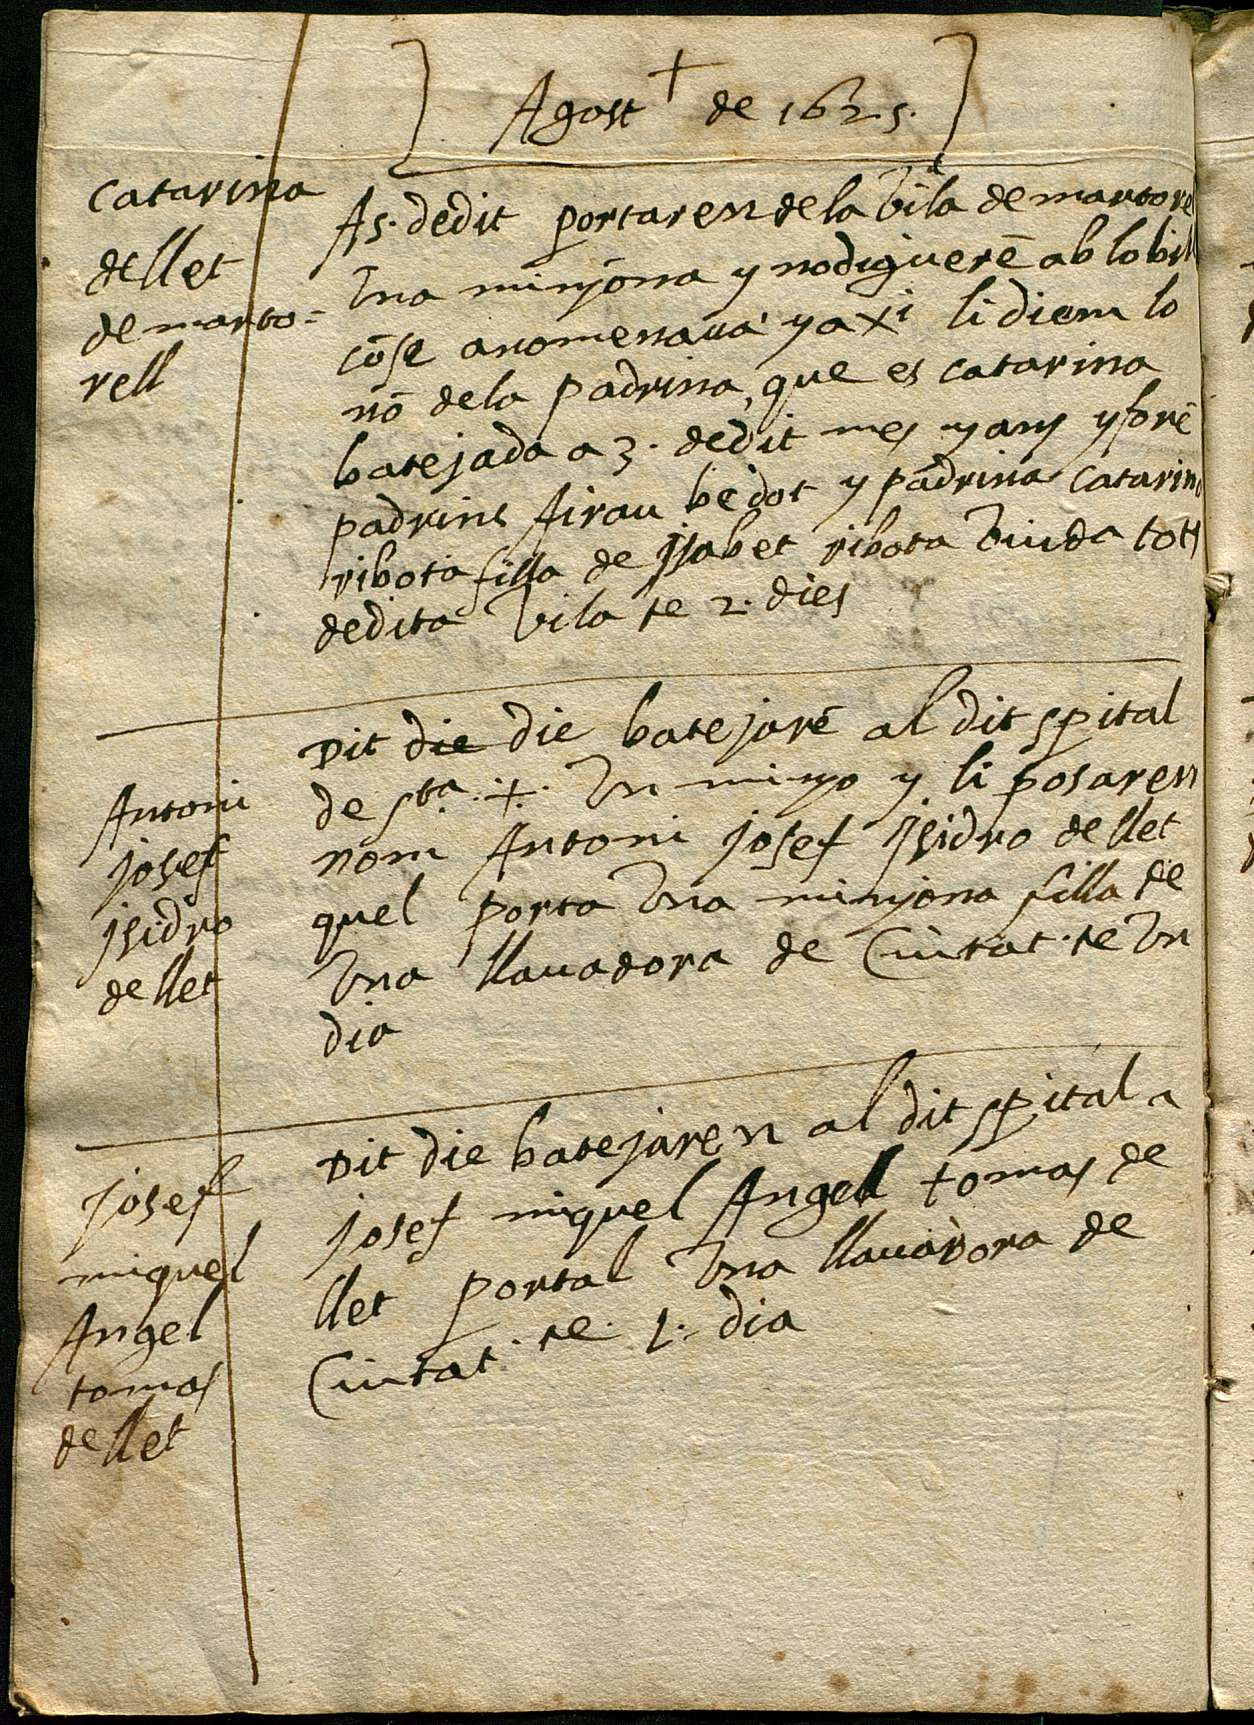 +
Agost de 1625.
Catarina
de llet
de marto=
rell
As. dedit portaren de la vila de martorel
Una minyona y no digueré ab lo bill
cõ se anomenaua y axi li diem lo
nõ de la padrina, que es catarina
batejada a 3. dedit mes y any y forẽ
padrins Airau bedot y padrina Catarina
ribota filla de jsabet ribota viuda tots
dedita vila te 2. dies
Antoni
josef
jsidro
de llet
Dit die die batejarẽ al dit spital
de sta. +. Un minyo y li posaren
nom Antoni josef jsidro de llet
quel porta Una minyona filla de
Una llauadora de Ciutat. te Un
dia
josef
miquel
Angel
tomas
de llet
Dit die batejaren al dit spital a
josef miquel Angel tomas de
llet portal Una llauadora de
Ciutat. te. 1. dia